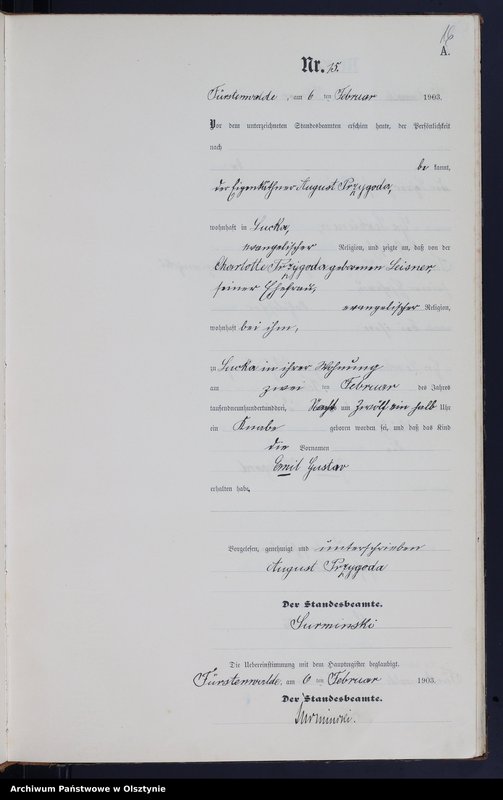 16
A.
Nr. 15.
Fürstenwalde, am 6 ten Februar 1903.
Vor dem unterzeichneten Standesbeamten erschien heute, der Persönlichkeit
nach
be kannt,
der Eigenkäthner August Przygoda,
wohnhaft in Lucka,
evangelischer Religion, und zeigte an, daß von der
Charlotte Przygoda geborenen Leisner
seiner Ehefrau,
evangelischer Religion,
wohnhaft bei ihm,
zu Lucka in ihrer Wohnung
am zwei ten Februar des Jahres
tausendneunhundertunddrei, Nachts um Zwölf ein halb Uhr
ein Knabe geboren worden sei, und daß das Kind
die Vornamen
Emil Gustav
erhalten habe.
Vorgelesen, genehmigt und unterschrieben
August Przygoda
Der Standesbeamte.
Surminski
Die Uebereinstimmung mit dem Hauptregister beglaubigt.
Fürstenwalde, am 6 ten Februar 1903.
Der Standesbeamte.
Surminski.
Archiwum Państwowe w Olsztynie